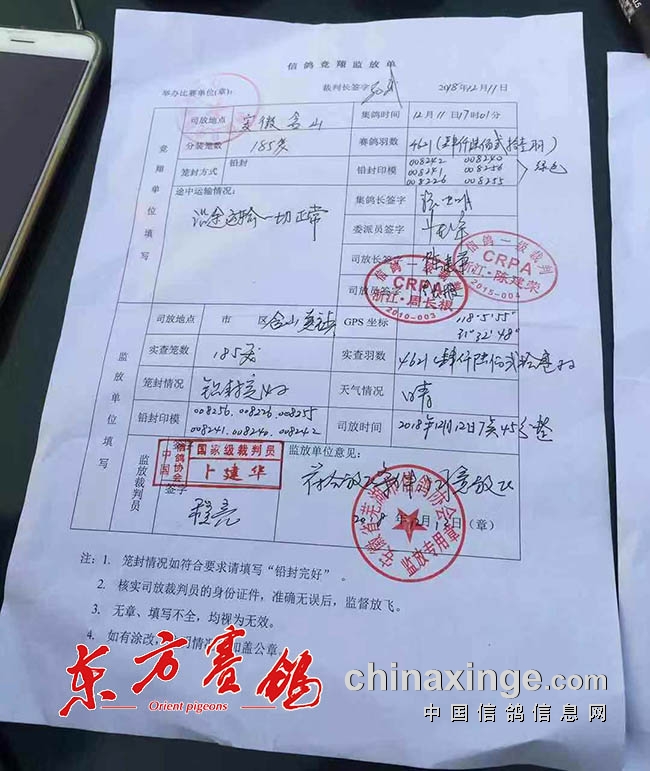 信鸽竞翔监放单
举办比赛单位(章): 裁判长签字 2018年12月11日
竞翔单位填写
司放地点 安徽含山 集鸽时间 12月11日17时01分
分装笼数 185笼 赛鸽羽数 4621(肆仟陆佰贰拾壹羽)
笼封方式 铅封 铅封印模 008242 008240
008241 008256
008226 008255 绿色
途中运输情况: 集鸽长签字
沿途运输一切正常 委派员签字
司放长签字
司放员签字
信鸽一级裁判
CRPA
浙江·陈建荣
2015-004
CRPA
浙江·周长根
2010-003
监放单位填写
司放地点 市 区 含山 GPS坐标 118°5′55″
31°32′48″
实查笼数 185笼 实查羽数 4621 肆仟陆佰贰拾壹羽
笼封情况 铅封完好 天气情况 晴
铅封印模 008256.008226.008255
008241.008240.008242 司放时间 2018年12月12日7点45分整
监放裁判员签字
中国信鸽协会 国家级裁判员
卜建华
监放单位意见:
2018年12月12日(章)
安徽省芜湖市信鸽协会
监放专用章
注: 1. 笼封情况如符合要求请填写“铅封完好”。
2. 核实司放裁判员的身份证件,准确无误后,监督放飞。
3. 无章、填写不全,均视为无效。
4. 如有涂改,情况加盖公章。
东方赛鸽
Orient pigeons
chinaxinge.com
中国信鸽信息网